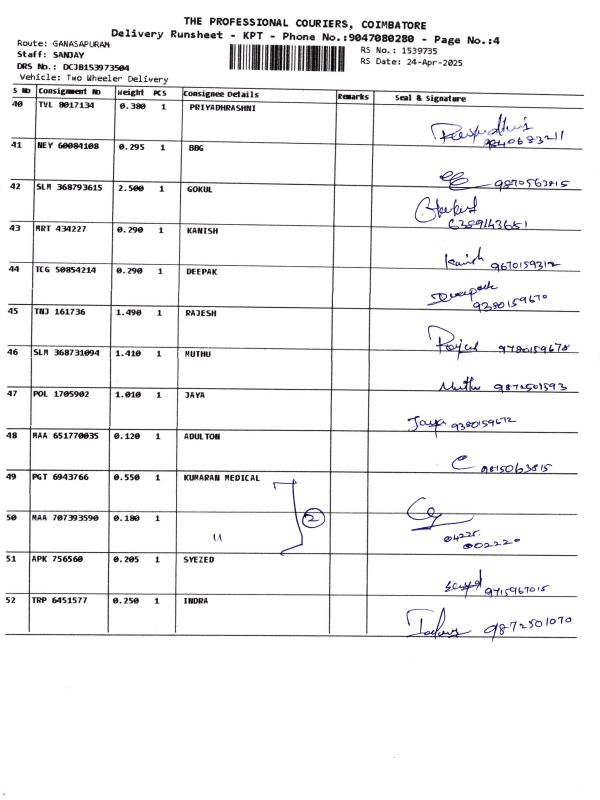 THE PROFESSIONAL COURIERS, COIMBATORE
Delivery Runsheet - KPT - Phone No.:9047080280 - Page No.:4
Route: GANASAPURAM
RS No.: 1539735
Staff: SANJAY
RS Date: 24-Apr-2025
DRS No.: DCJB153973504
Vehicle: Two Wheeler Delivery
S No Consignment No Weight PCS Consignee Details Remarks Seal & Signature
40 TVL 8017134 0.380 1 PRIYADHRASHNI
9840683211
41 NEY 60084108 0.295 1 BBG
9870563815
42 SLM 368793615 2.500 1 GOKUL
43 MRT 434227 0.290 1 KANISH
Kanish 9670159312
44 TCG 50854214 0.290 1 DEEPAK
Deepak
9380159670
45 TNJ 161736 1.490 1 RAJESH
Rajesh 9780159678
46 SLM 368731094 1.410 1 MUTHU
Muthu 9872501593
47 POL 1705902 1.010 1 JAYA
Jaya 9380159672
48 MAA 651770035 0.120 1 ADULTON
9815063815
49 PGT 6943766 0.550 1 KUMARAN MEDICAL
2
50 MAA 707393590 0.180 1 "
04225
002220
51 APK 756560 0.205 1 SYEZED
9715967015
52 TRP 6451577 0.250 1 INDRA
9872501070